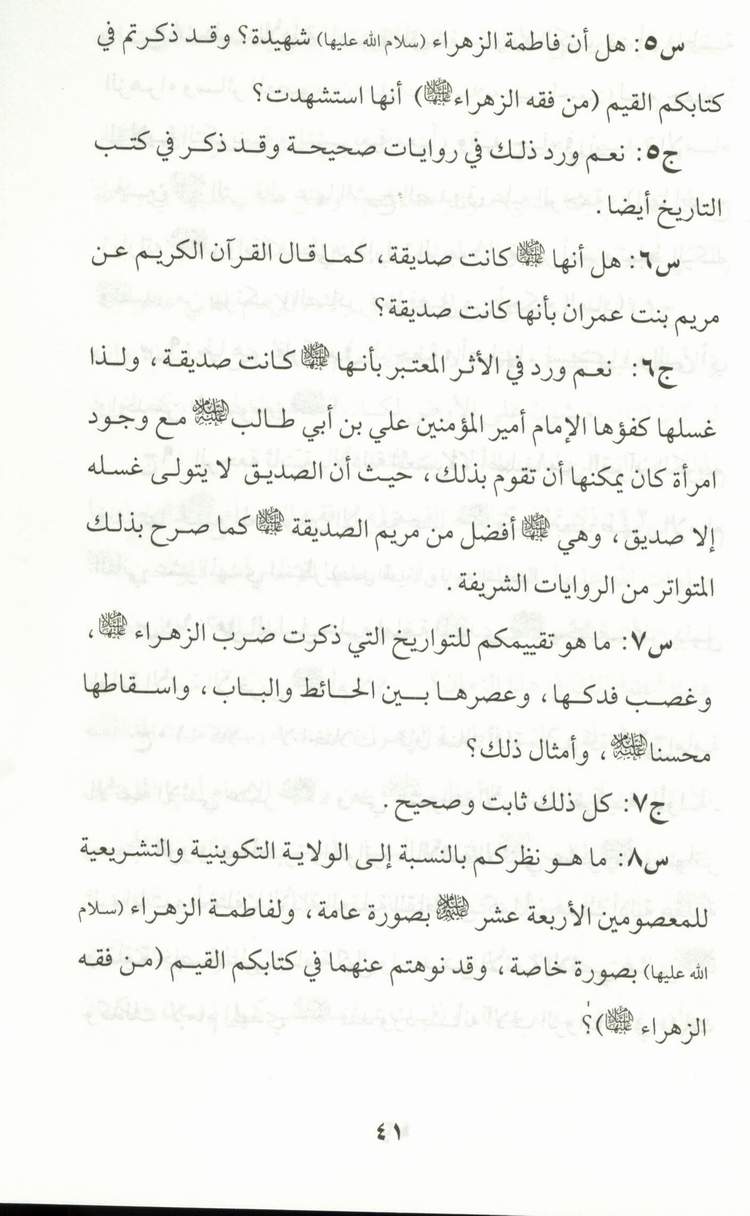 س٥: هل أن فاطمة الزهراء (سلام الله عليها) شهيدة؟ وقد ذكرتم في
كتابكم القيم (من فقه الزهراء عليها السلام) أنها استشهدت؟
ج٥: نعم ورد ذلك في روايات صحيحة وقد ذكر في كتب
التاريخ أيضا.
س٦: هل أنها عليها السلام كانت صديقة، كما قال القرآن الكريم عن
مريم بنت عمران بأنها كانت صديقة؟
ج٦: نعم ورد في الأثر المعتبر بأنها عليها السلام كانت صديقة، ولذا
غسلها كفؤها الإمام أمير المؤمنين علي بن أبي طالب عليه السلام مع وجود
امرأة كان يمكنها أن تقوم بذلك، حيث أن الصديق لا يتولى غسله
إلا صديق، وهي عليها السلام أفضل من مريم الصديقة عليها السلام كما صرح بذلك
المتواتر من الروايات الشريفة.
س٧: ما هو تقييمكم للتواريخ التي ذكرت ضرب الزهراء عليها السلام،
وغصب فدكها، وعصرها بين الحائط والباب، واسقاطها
محسنا عليه السلام، وأمثال ذلك؟
ج٧: كل ذلك ثابت وصحيح.
س٨: ما هو نظركم بالنسبة إلى الولاية التكوينية والتشريعية
للمعصومين الأربعة عشر عليهم السلام بصورة عامة، ولفاطمة الزهراء (سلام
الله عليها) بصورة خاصة، وقد نوهتم عنهما في كتابكم القيم (من فقه
الزهراء عليها السلام)؟
٤١